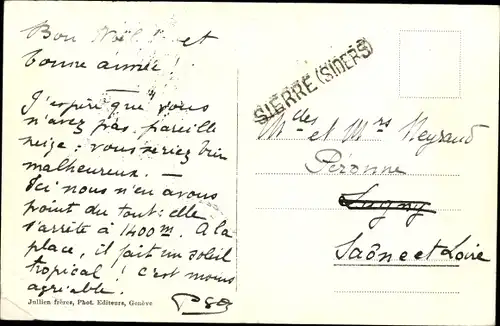 Bon Noël !! et
bonne année !
J'espère que vous
n'avez pas pareille
neige : vous seriez bien
malheureux. —
Ici nous n'en avons
point du tout : elle
s'arrête à 1400 m. A la
place, il fait un soleil
tropical ! C'est moins
agréable.
Jullien frères, Phot. Editeurs, Genève
SIERRE (SIDERS)
Mdes et Mrs Meyraud
Péronne
Lugny
Saône et Loire